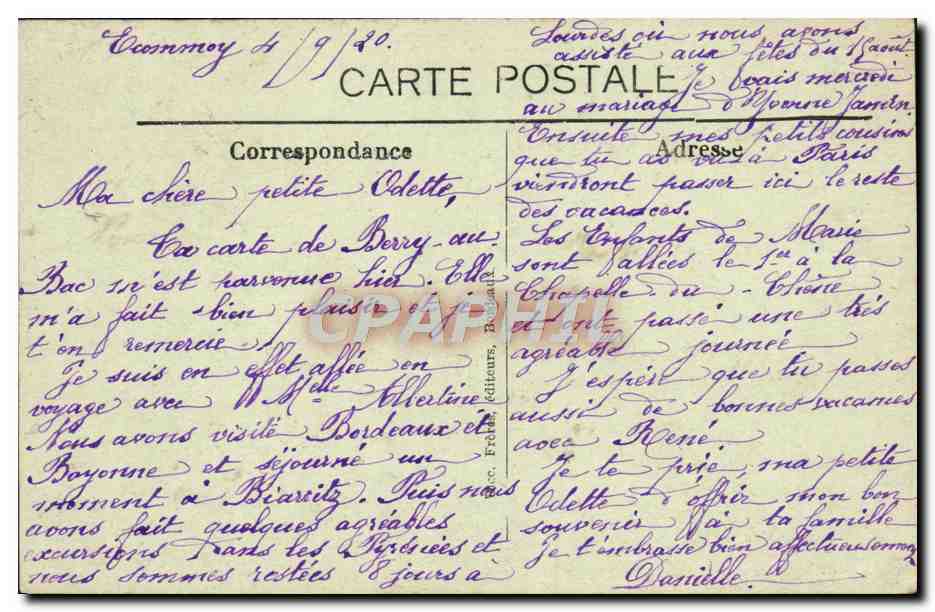 Ecommoy 4/9/20.
CARTE POSTALE
Correspondance
Ma chère petite Odette,
Ta carte de Berry-au-
Bac m'est parvenue hier. Elle
m'a fait bien plaisir et je
t'en remercie.
Je suis en effet allée en
voyage avec Melle Albertine.
Nous avons visité Bordeaux et
Bayonne et séjourné un
moment à Biarritz. Puis nous
avons fait quelques agréables
excursions dans les Pyrénées et
nous sommes restées 8 jours à
Lourdes où nous avons
assisté aux fêtes du 15 août.
Je vais mercredi
au mariage d'Yvonne Jamin.
Ensuite mes petits cousins
Adresse
que tu as vus à Paris
viendront passer ici le reste
des vacances.
Les Enfants de Marie
sont allées le 1er à la
Chapelle du Chêne
et ont passé une très
agréable journée
J'espère que tu passes
aussi de bonnes vacances
avec René.
Je te prie, ma petite
Odette d'offrir mon bon
souvenir à ta famille
Je t'embrasse bien affectueusement
Danielle.
Frères, éditeurs,
CPAPHIL